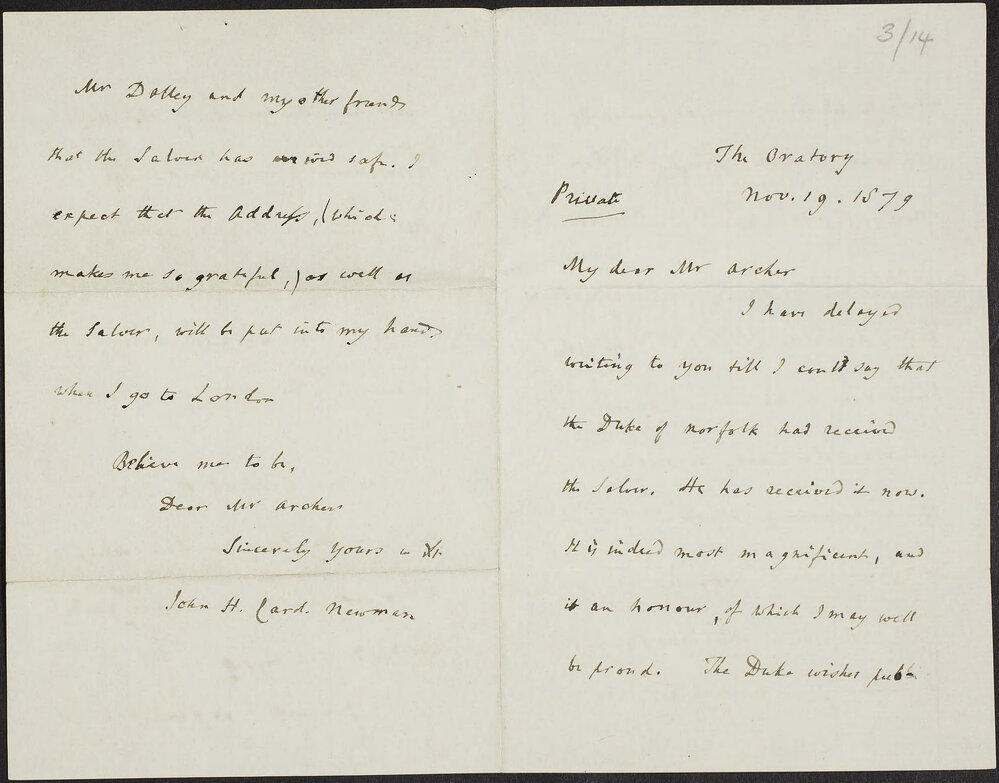 3/14
The Oratory
Private Nov. 19. 1879
My dear Mr Archer
I have delayed
writing to you till I could say that
the Duke of Norfolk had received
the Salver. He has received it now.
It is indeed most magnificent, and
is an honour, of which I may well
be proud. The Duke wishes
Mr Dalley and my other friends
that the Salver has arrived safe. I
expect that the Address, (which
makes me so grateful,) as well as
the Salver, will be put into my hands
when I go to London
Believe me to be,
Dear Mr Archer
Sincerely Yours in Xt
John H. Card. Newman